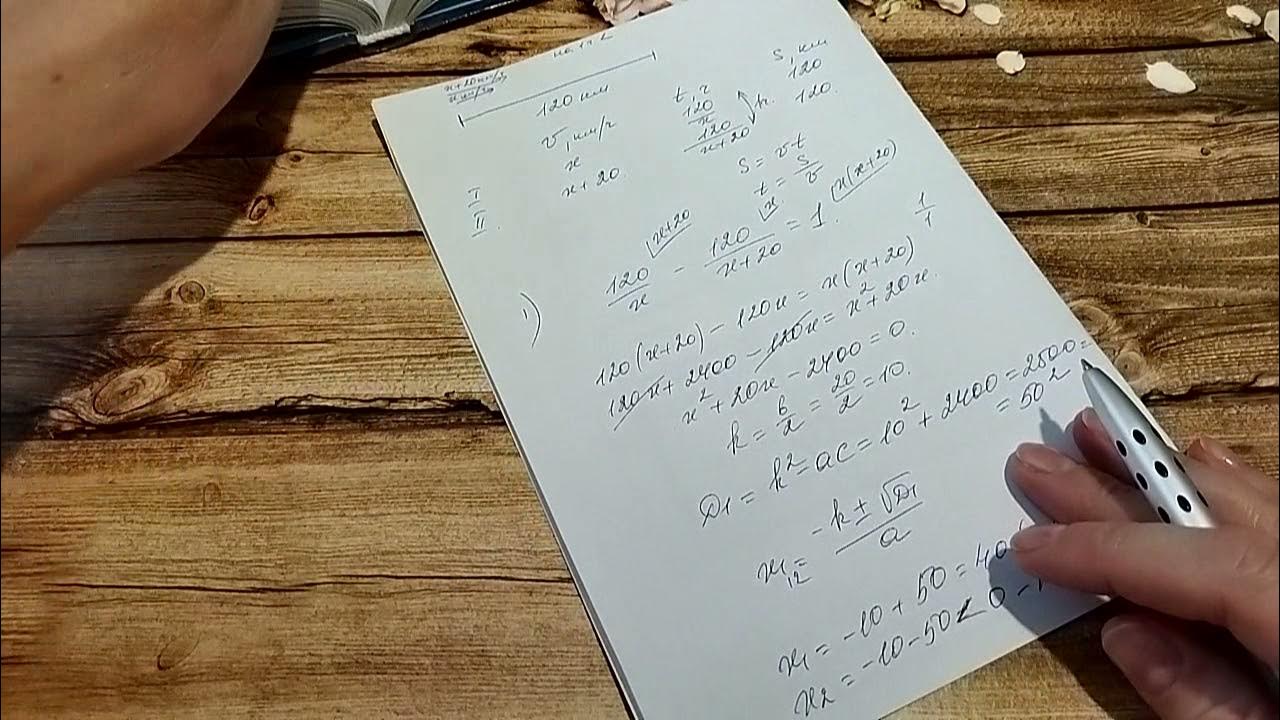 на 1 ч
x+20 км/ч
x км/ч
120 км
v, км/г t, г S, км
I x 120/x 120
II. x+20 120/(x+20) 120.
S = vt
t = S/v
1) 120/x |x+20 − 120/(x+20) |x = 1. |x(x+20) 1/1
120(x+20) − 120x = x(x+20)
120x + 2400 − 120x = x² + 20x.
x² + 20x − 2400 = 0.
k = b/2 = 20/2 = 10.
D₁ = k² = ac = 10² + 2400 = 2500 =
= 50²
x₁,₂ = (−k ± √D₁)/a
x₁ = −10 + 50 = 40
x₂ = −10 − 50 < 0 −